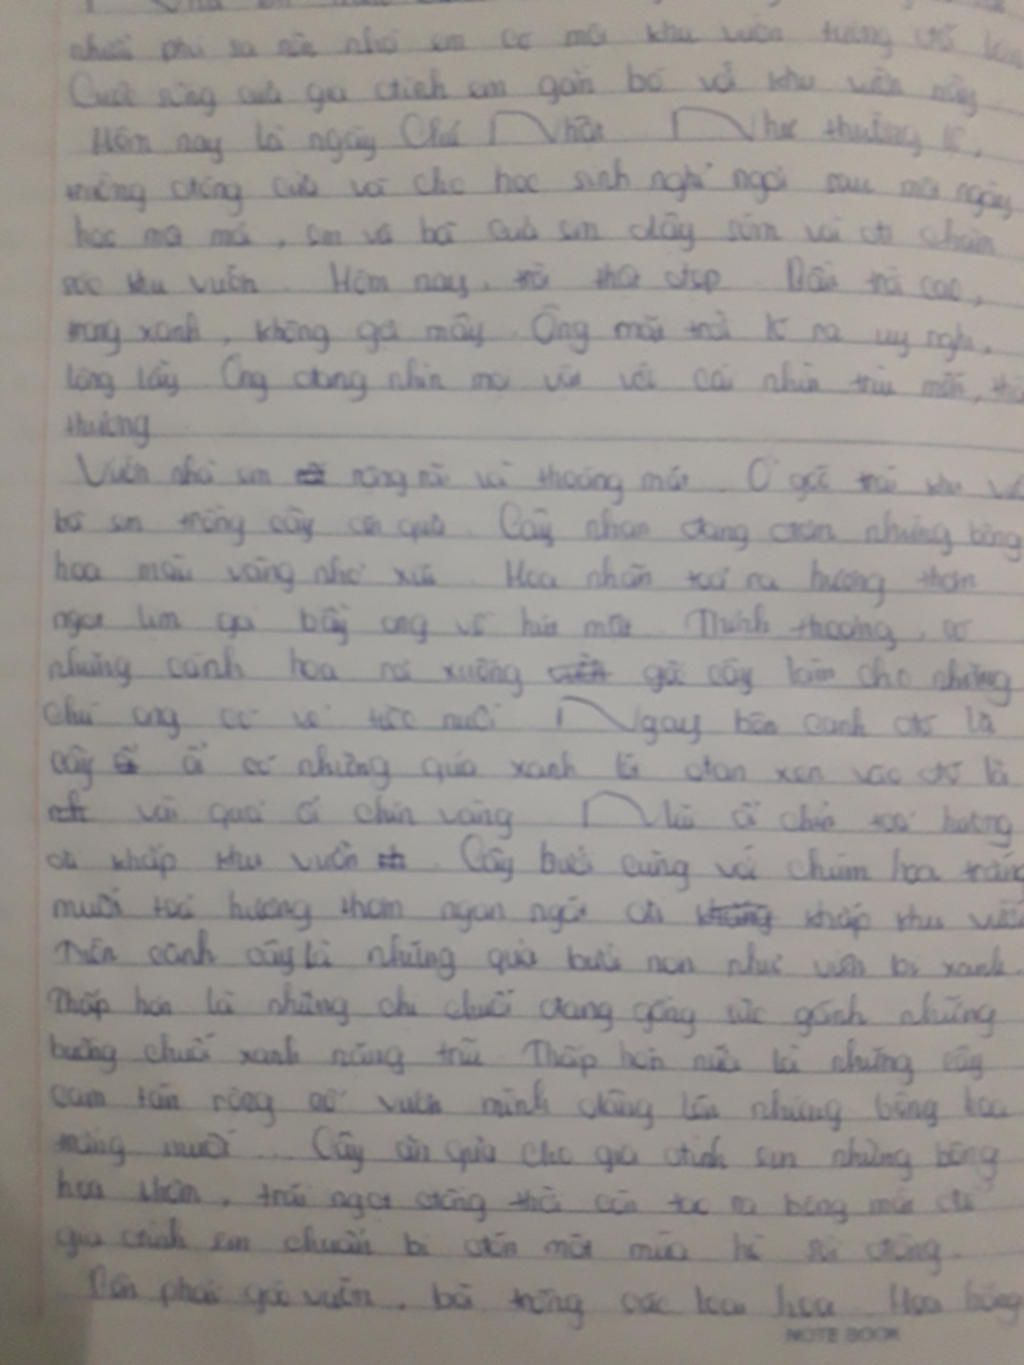 nhưới phí ra sân nhà em có một khu vườn tương đối
Cuộc sống của gia đình em gắn bó với khu vườn này
Hôm nay là ngày Chủ Nhật. Như thường lệ,
trường đóng cửa và cho học sinh nghỉ ngơi sau mỗi ngày
học mệt mỏi, em và bố của em dậy sớm và đi chăm
sóc khu vườn. Hôm nay, trời thật đẹp. Bầu trời cao,
trong xanh, không gợi mây. Ông mặt trời ra uy nghi,
lộng lẫy. Ông đang nhìn mọi vật với cái nhìn trìu mến,
thương
Vườn nhà em rộng rãi và thoáng mát. Ở góc trái khu
bố em trồng cây ăn quả. Cây nhãn đang đơm những bông
hoa màu vàng nhỏ xíu. Hoa nhãn toả ra hương thơm
ngọt lịm gọi bầy ong về hút mật. Thỉnh thoảng, có
những cánh hoa rơi xuống gốc cây làm cho những
chú ong có vẻ tức nuối. Ngay bên cạnh đó là
cây ổi có những quả xanh đan xen vào đó là
vài quả ổi chín vàng. Mùi ổi chín toả hương
đi khắp khu vườn. Cây bưởi cũng với chùm hoa trắng
muốt toả hương thơm ngan ngát đi khắp khu vườn
Trên cành cây là những quả bưởi non như viên bi xanh.
Thấp hơn là những chị chuối đang gồng sức gánh những
buồng chuối xanh nặng trĩu. Thấp hơn nữa là những cây
cam tán rộng cố vươn mình dâng lên những bông hoa
trắng muốt... Cây ăn quả cho gia đình em những bông
hoa thơm, trái ngọt đồng thời còn tạo ra bóng mát để
gia đình em chuẩn bị đón một mùa hè sôi động.
Bên phải góc vườn, bố trồng các loại hoa. Hoa hồng
NOTE BOOK